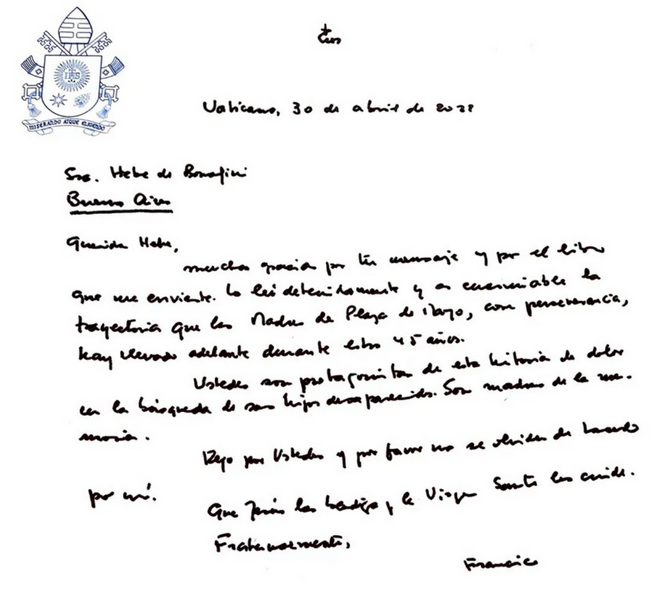 MISERANDO ATQUE ELIGENDO
Vaticano, 30 de abril de 2022
Sra. Hebe de Bonafini
Buenos Aires
Querida Hebe,
muchas gracias por tu mensaje y por el libro
que me enviaste. Lo leí detenidamente y es encomiable la
trayectoria que las Madres de Plaza de Mayo, con perseverancia,
han llevado adelante durante estos 45 años.
Ustedes son protagonistas de esta historia de dolor
en la búsqueda de sus hijos desaparecidos. Son madres de la me-
moria.
Rezo por Ustedes y por favor no se olviden de hacerlo
por mí.
Que Jesús las bendiga y la Virgen Santa las cuide.
Fraternalmente,
Francisco